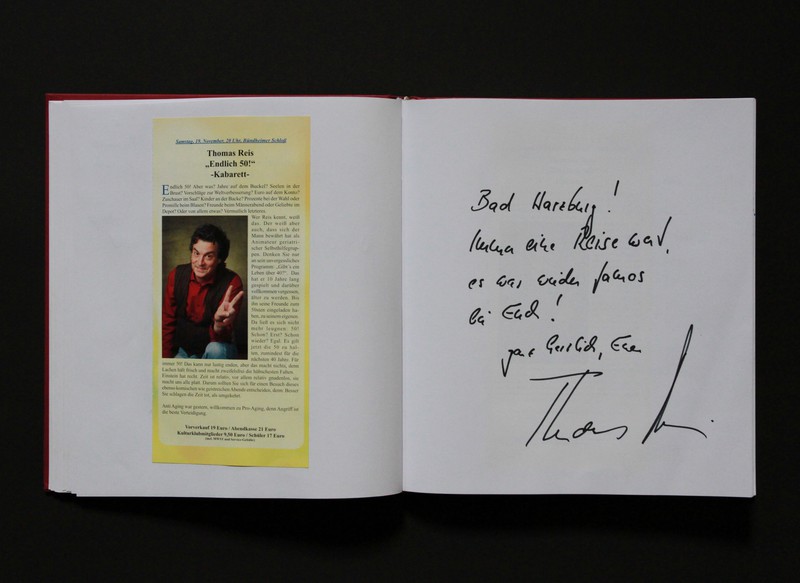 Samstag, 19. November, 20 Uhr, Bündheimer Schloß
Thomas Reis
„Endlich 50!“
-Kabarett-
Endlich 50! Aber was? Jahre auf dem Buckel? Seelen in der
Brust? Vorschläge zur Weltverbesserung? Euro auf dem Konto?
Zuschauer im Saal? Kinder an der Backe? Prozente bei der Wahl oder
Promille beim Blasen? Freunde beim Männerabend oder Geliebte im
Depot? Oder von allem etwas? Vermutlich letzteres.
Wer Reis kennt, weiß
das. Der weiß aber
auch, dass sich der
Mann bewährt hat als
Animateur geriatri-
scher Selbsthilfegrup-
pen. Denken Sie nur
an sein unvergessliches
Programm: „Gibt's ein
Leben über 40?“. Das
hat er 10 Jahre lang
gespielt und darüber
vollkommen vergessen,
älter zu werden. Bis
ihn seine Freunde zum
50sten eingeladen ha-
ben, zu seinem eigenen.
Da ließ es sich nicht
mehr leugnen. 50!
Schon? Erst? Schon
wieder? Egal. Es gilt
jetzt die 50 zu hal-
ten, zumindest für die
nächsten 40 Jahre. Für
immer 50! Das kann nur lustig enden, aber das macht nichts, denn
Lachen hält frisch und macht zweifelsfrei die hübschesten Falten.
Einstein hat recht. Zeit ist relativ, vor allem relativ gnadenlos, sie
macht uns alle platt. Darum sollten Sie sich für einen Besuch dieses
ebenso komischen wie geistreichen Abends entscheiden, denn: Besser
Sie schlagen die Zeit tot, als umgekehrt.
Anti Aging war gestern, willkommen zu Pro-Aging, denn Angriff ist
die beste Verteidigung.
Vorverkauf 19 Euro / Abendkasse 21 Euro
Kulturklubmitglieder 9,50 Euro / Schüler 17 Euro
(incl. MWST und Service-Gebühr)
Bad Harzburg!
Immer eine Reise wert,
es war wieder famos
bei Euch!
ganz herzlich, Euer
Thomas Reis